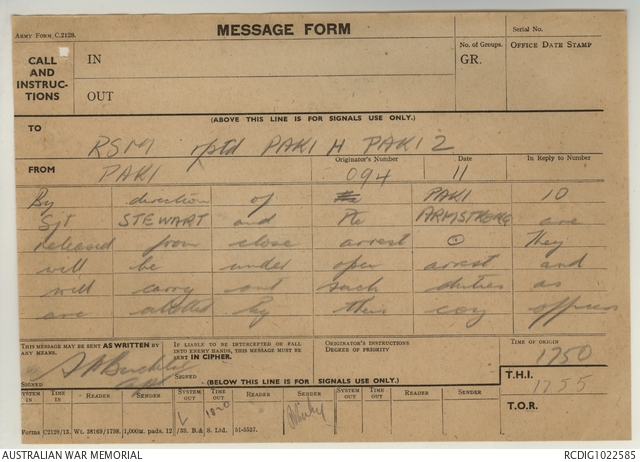 ARMY FORM C.2128.
MESSAGE FORM
Serial No.
CALL AND INSTRUC-TIONS
IN
OUT
No. of Groups.
GR.
OFFICE DATE STAMP
(ABOVE THIS LINE IS FOR SIGNALS USE ONLY.)
TO RSM rptd PAKI H PAKI 2
FROM PAKI
Originator's Number 094
Date 11
In Reply to Number
By direction of PAKI 10
Sjt STEWART and Pte ARMSTRONG are
released from close arrest ⊙ They
will be under open arrest and
will carry out such duties as
are allotted by their coy officers
THIS MESSAGE MAY BE SENT AS WRITTEN BY ANY MEANS.
IF LIABLE TO BE INTERCEPTED OR FALL INTO ENEMY HANDS, THIS MESSAGE MUST BE SENT IN CIPHER.
ORIGINATOR'S INSTRUCTIONS
DEGREE OF PRIORITY
TIME OF ORIGIN
1750
SIGNED
SIGNED
(BELOW THIS LINE IS FOR SIGNALS USE ONLY.)
T.H.I.
1755
SYSTEM IN
TIME IN
READER
SENDER
SYSTEM OUT
TIME OUT
READER
SENDER
SYSTEM OUT
TIME OUT
READER
SENDER
T.O.R.
Forms C2128/13. Wt. 38169/1798. 1,000m. pads. 12/38. B.& S. Ltd. 51-5527.
AUSTRALIAN WAR MEMORIAL
RCDIG1022585